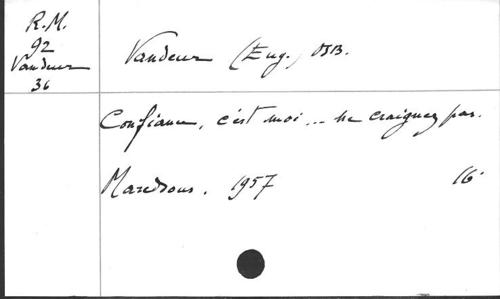 R.M.
92
Vandeur
36
Vandeur (Eug.) OSB.
Confiance, c'est moi ... ne craignez pas.
Maredsous. 1957 16°